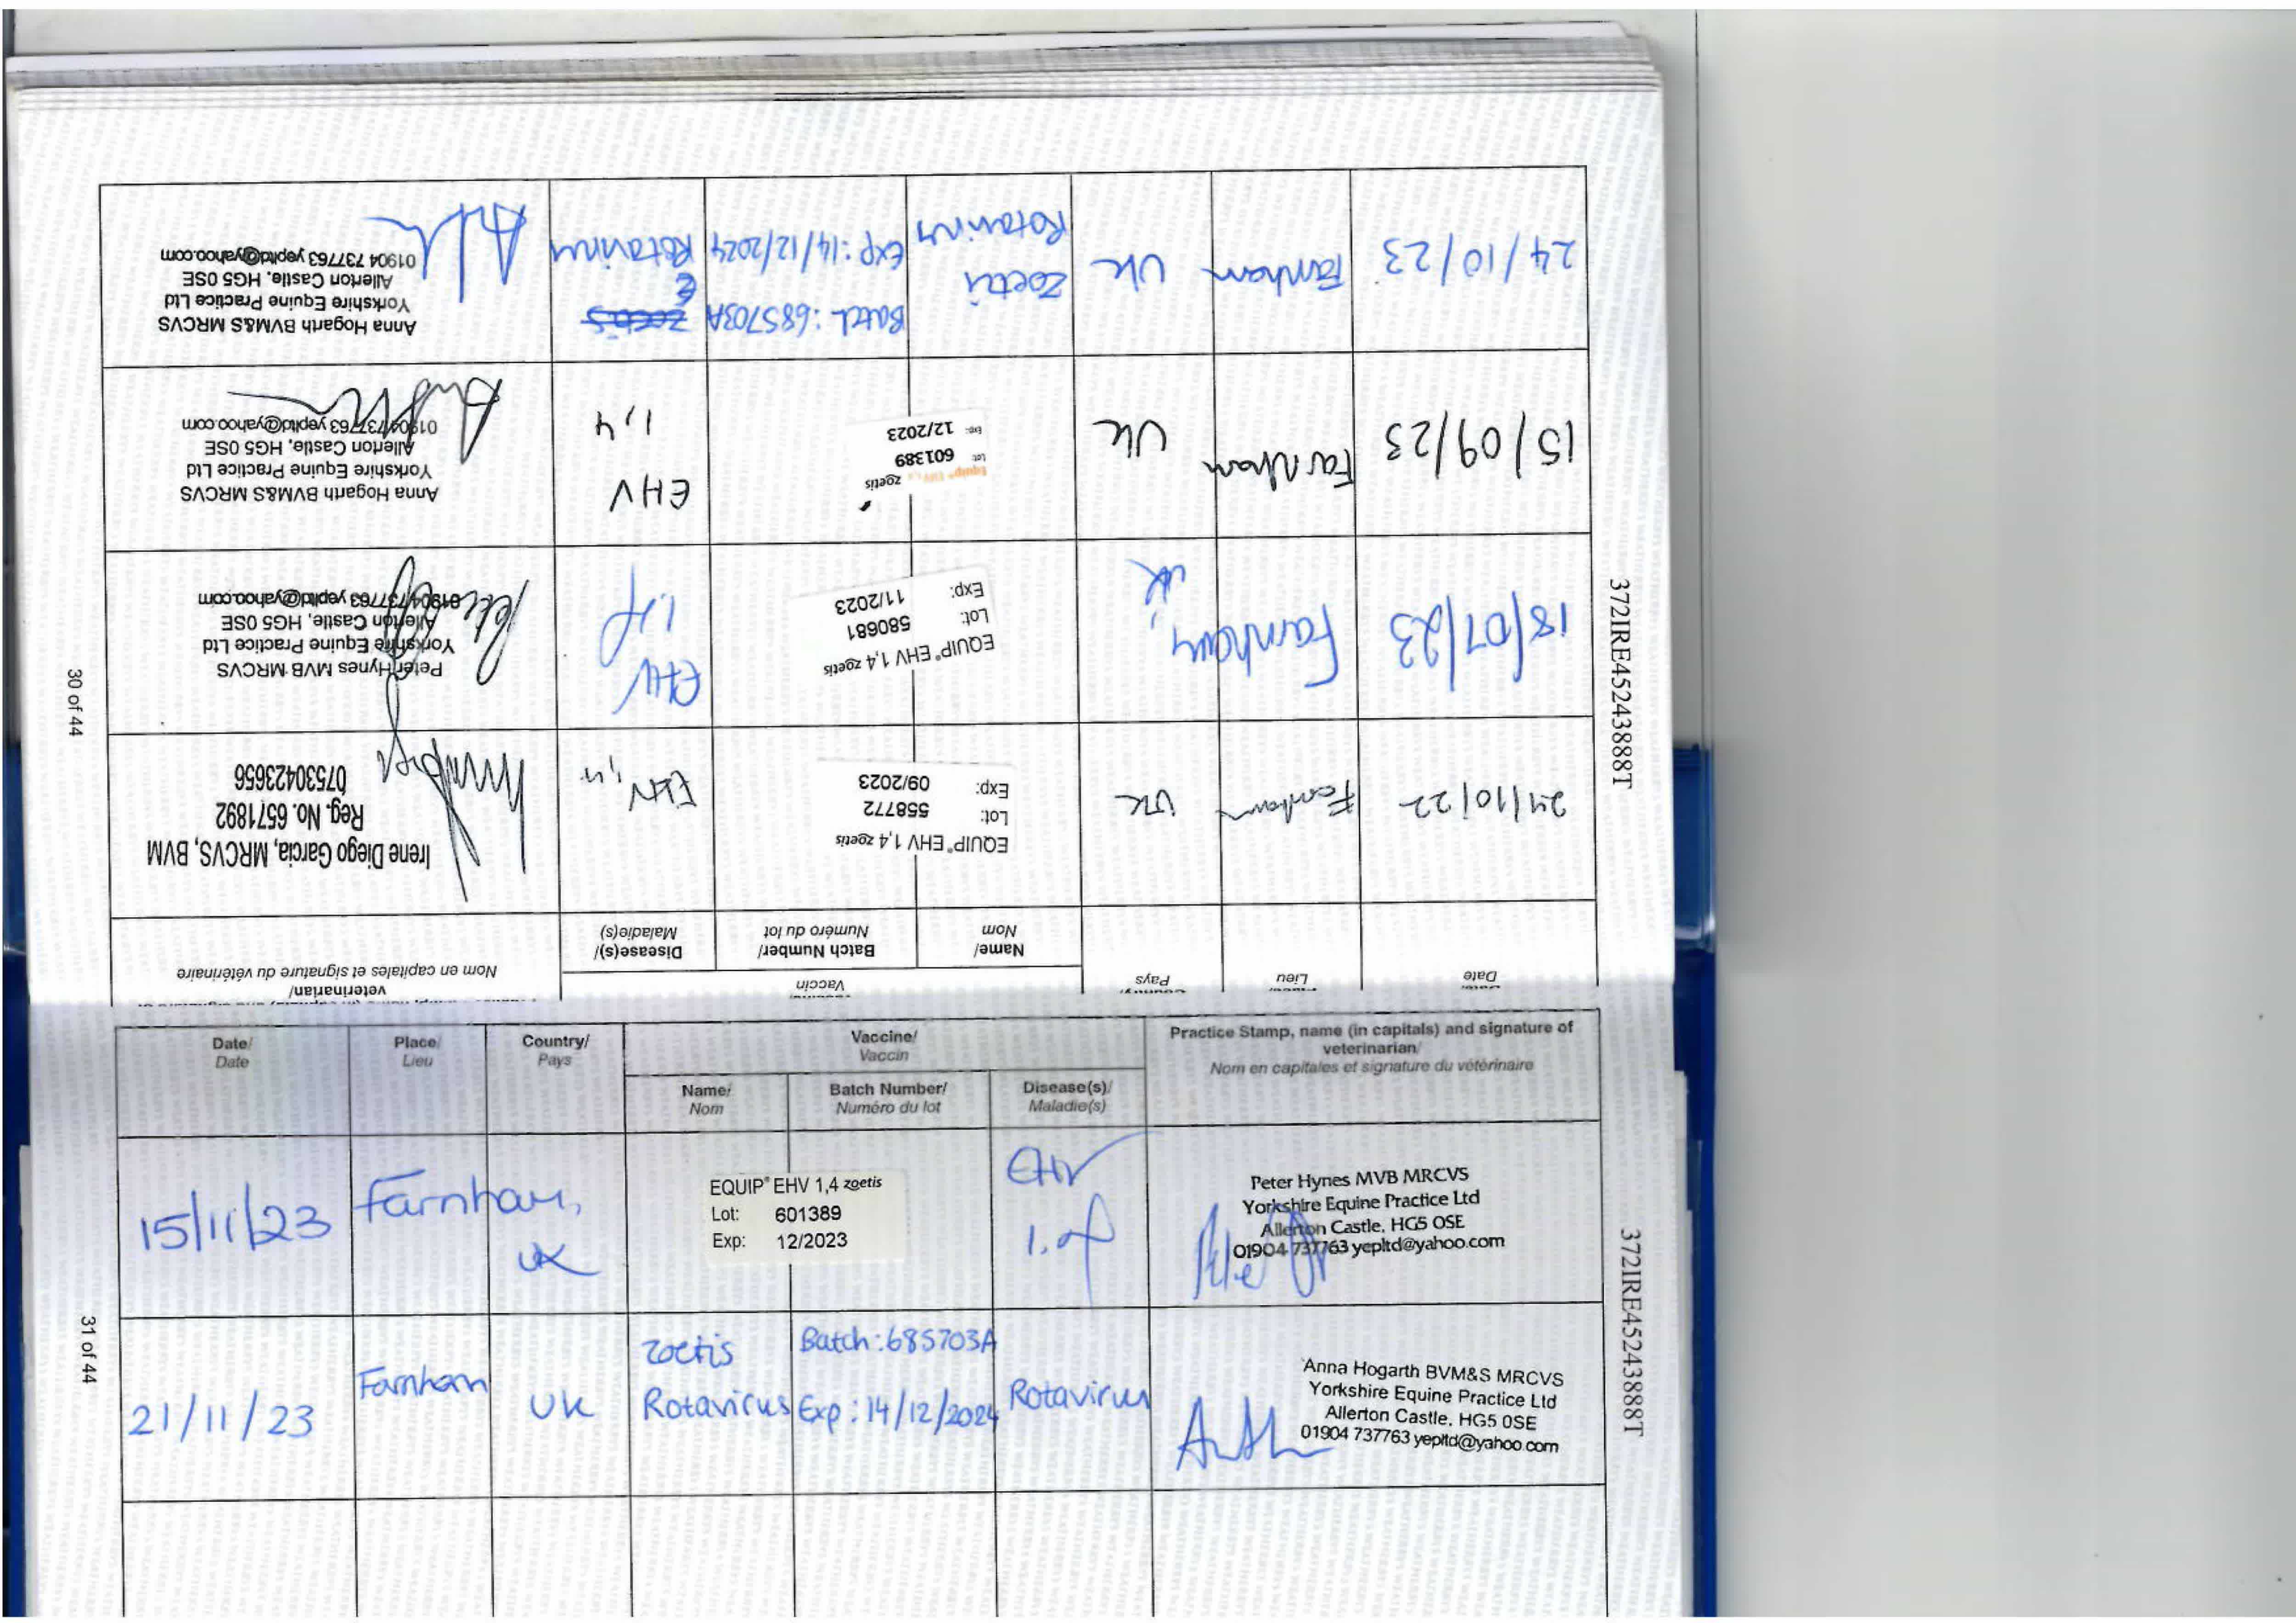 372IRE45243888T
30 of 44
Date
Lieu
Pays
Vaccin
veterinarian/
Nom en capitales et signature du vétérinaire
Name/
Nom
Batch Number/
Numéro du lot
Disease(s)/
Maladie(s)
24/10/22
Farnham
UK
EQUIP® EHV 1,4 zoetis
Lot: 558772
Exp: 09/2023
EHV 1,4
Irene Diego Garcia, MRCVS, BVM
Reg. No. 6571892
07530423656
18/07/23
Farnham,
UK
EQUIP® EHV 1,4 zoetis
Lot: 580681
Exp: 11/2023
EHV
1,4
Peter Hynes MVB MRCVS
Yorkshire Equine Practice Ltd
Allerton Castle, HG5 0SE
01904 737763 yepltd@yahoo.com
15/09/23
Farnham
UK
Equip® EHV 1,4 zoetis
Lot: 601389
Exp: 12/2023
EHV
1,4
Anna Hogarth BVM&S MRCVS
Yorkshire Equine Practice Ltd
Allerton Castle, HG5 0SE
01904 737763 yepltd@yahoo.com
24/10/23
Farnham
UK
Zoetis
Rotavirus
Batch: 685703A
Exp: 14/12/2024
Rotavirus
Anna Hogarth BVM&S MRCVS
Yorkshire Equine Practice Ltd
Allerton Castle, HG5 0SE
01904 737763 yepltd@yahoo.com
Date/
Date
Place/
Lieu
Country/
Pays
Vaccine/
Vaccin
Practice Stamp, name (in capitals) and signature of
veterinarian/
Nom en capitales et signature du vétérinaire
Name/
Nom
Batch Number/
Numéro du lot
Disease(s)/
Maladie(s)
15/11/23
Farnham,
UK
EQUIP® EHV 1,4 zoetis
Lot: 601389
Exp: 12/2023
EHV
1,4
Peter Hynes MVB MRCVS
Yorkshire Equine Practice Ltd
Allerton Castle, HG5 0SE
01904 737763 yepltd@yahoo.com
21/11/23
Farnham
UK
Zoetis
Rotavirus
Batch: 685703A
Exp: 14/12/2024
Rotavirus
Anna Hogarth BVM&S MRCVS
Yorkshire Equine Practice Ltd
Allerton Castle, HG5 0SE
01904 737763 yepltd@yahoo.com
372IRE45243888T
31 of 44